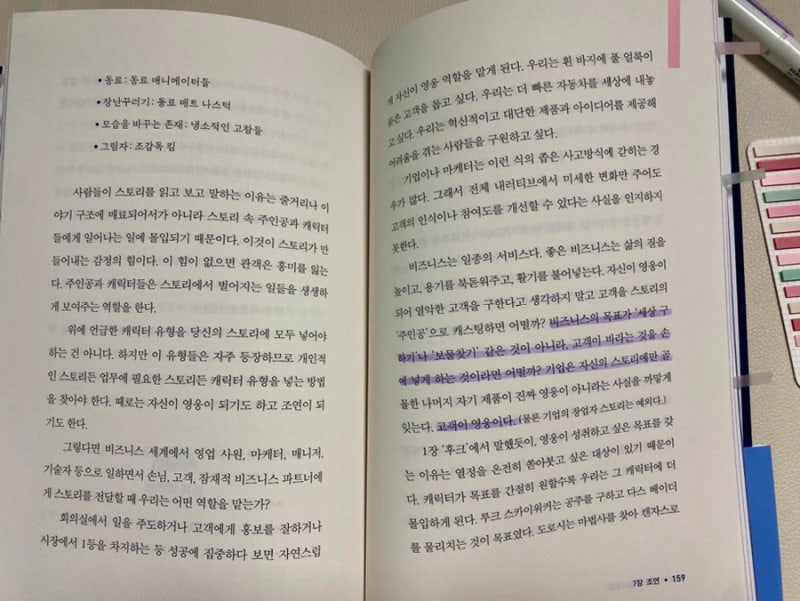 • 동료: 동료 애니메이터들
• 장난꾸러기: 동료 매트 나스턱
• 모습을 바꾸는 존재: 냉소적인 고참들
• 그림자: 조감독 킴
사람들이 스토리를 읽고 보고 말하는 이유는 줄거리나 이
야기 구조에 매료되어서가 아니라 스토리 속 주인공과 캐릭터
들에게 일어나는 일에 몰입되기 때문이다. 이것이 스토리가 만
들어내는 감정의 힘이다. 이 힘이 없으면 관객은 흥미를 잃는
다. 주인공과 캐릭터들은 스토리에서 벌어지는 일들을 생생하
게 보여주는 역할을 한다.
위에 언급한 캐릭터 유형을 당신의 스토리에 모두 넣어야
하는 건 아니다. 하지만 이 유형들은 자주 등장하므로 개인적
인 스토리든 업무에 필요한 스토리든 캐릭터 유형을 넣는 방법
을 찾아야 한다. 때로는 자신이 영웅이 되기도 하고 조연이 되
기도 한다.
그렇다면 비즈니스 세계에서 영업 사원, 마케터, 매니저,
기술자 등으로 일하면서 손님, 고객, 잠재적 비즈니스 파트너에
게 스토리를 전달할 때 우리는 어떤 역할을 맡는가?
회의실에서 일을 주도하거나 고객에게 홍보를 잘하거나
시장에서 1등을 차지하는 등 성공에 집중하다 보면 자연스럽
게 자신이 영웅 역할을 맡게 된다. 우리는 흰 바지에 풀 얼룩이
묻은 고객을 돕고 싶다. 우리는 더 빠른 자동차를 세상에 내놓
고 싶다. 우리는 혁신적이고 대단한 제품과 아이디어를 제공해
어려움을 겪는 사람들을 구원하고 싶다.
기업이나 마케터는 이런 식의 좁은 사고방식에 갇히는 경
우가 많다. 그래서 전체 내러티브에서 미세한 변화만 주어도
고객의 인식이나 참여도를 개선할 수 있다는 사실을 인지하지
못한다.
비즈니스는 일종의 서비스다. 좋은 비즈니스는 삶의 질을
높이고, 용기를 북돋워주고, 활기를 불어넣는다. 자신이 영웅이
되어 열악한 고객을 구한다고 생각하지 말고 고객을 스토리의
‘주인공’으로 캐스팅하면 어떨까? 비즈니스의 목표가 ‘세상 구
하기’나 ‘보물찾기’ 같은 것이 아니라, 고객이 바라는 것을 손
에 넣게 하는 것이라면 어떨까? 기업은 자신의 스토리에만 골
몰한 나머지 자기 제품이 진짜 영웅이 아니라는 사실을 까맣게
잊는다. 고객이 영웅이다. (물론 기업의 창업자 스토리는 예외다.)
1장 ‘후크’에서 말했듯이, 영웅이 성취하고 싶은 목표를 갖
는 이유는 열정을 온전히 쏟아붓고 싶은 대상이 있기 때문이
다. 캐릭터가 목표를 간절히 원할수록 우리는 그 캐릭터에 더
몰입하게 된다. 루크 스카이워커는 공주를 구하고 다스 베이더
를 물리치는 것이 목표였다. 도로시는 마법사를 찾아 캔자스로
7장 조연 • 159